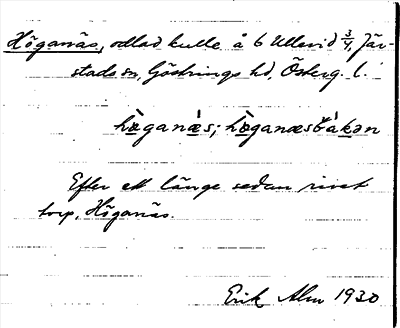 Höganäs, odlad kulle å 6 Ullevid 3/4, Jär-
stads sn, Göstrings hd, Österg. l.
hö̀ganä́s; hö̀ganæsbákən
Efter ett länge sedan rivet
torp, Höganäs.
Erik Alm 1930